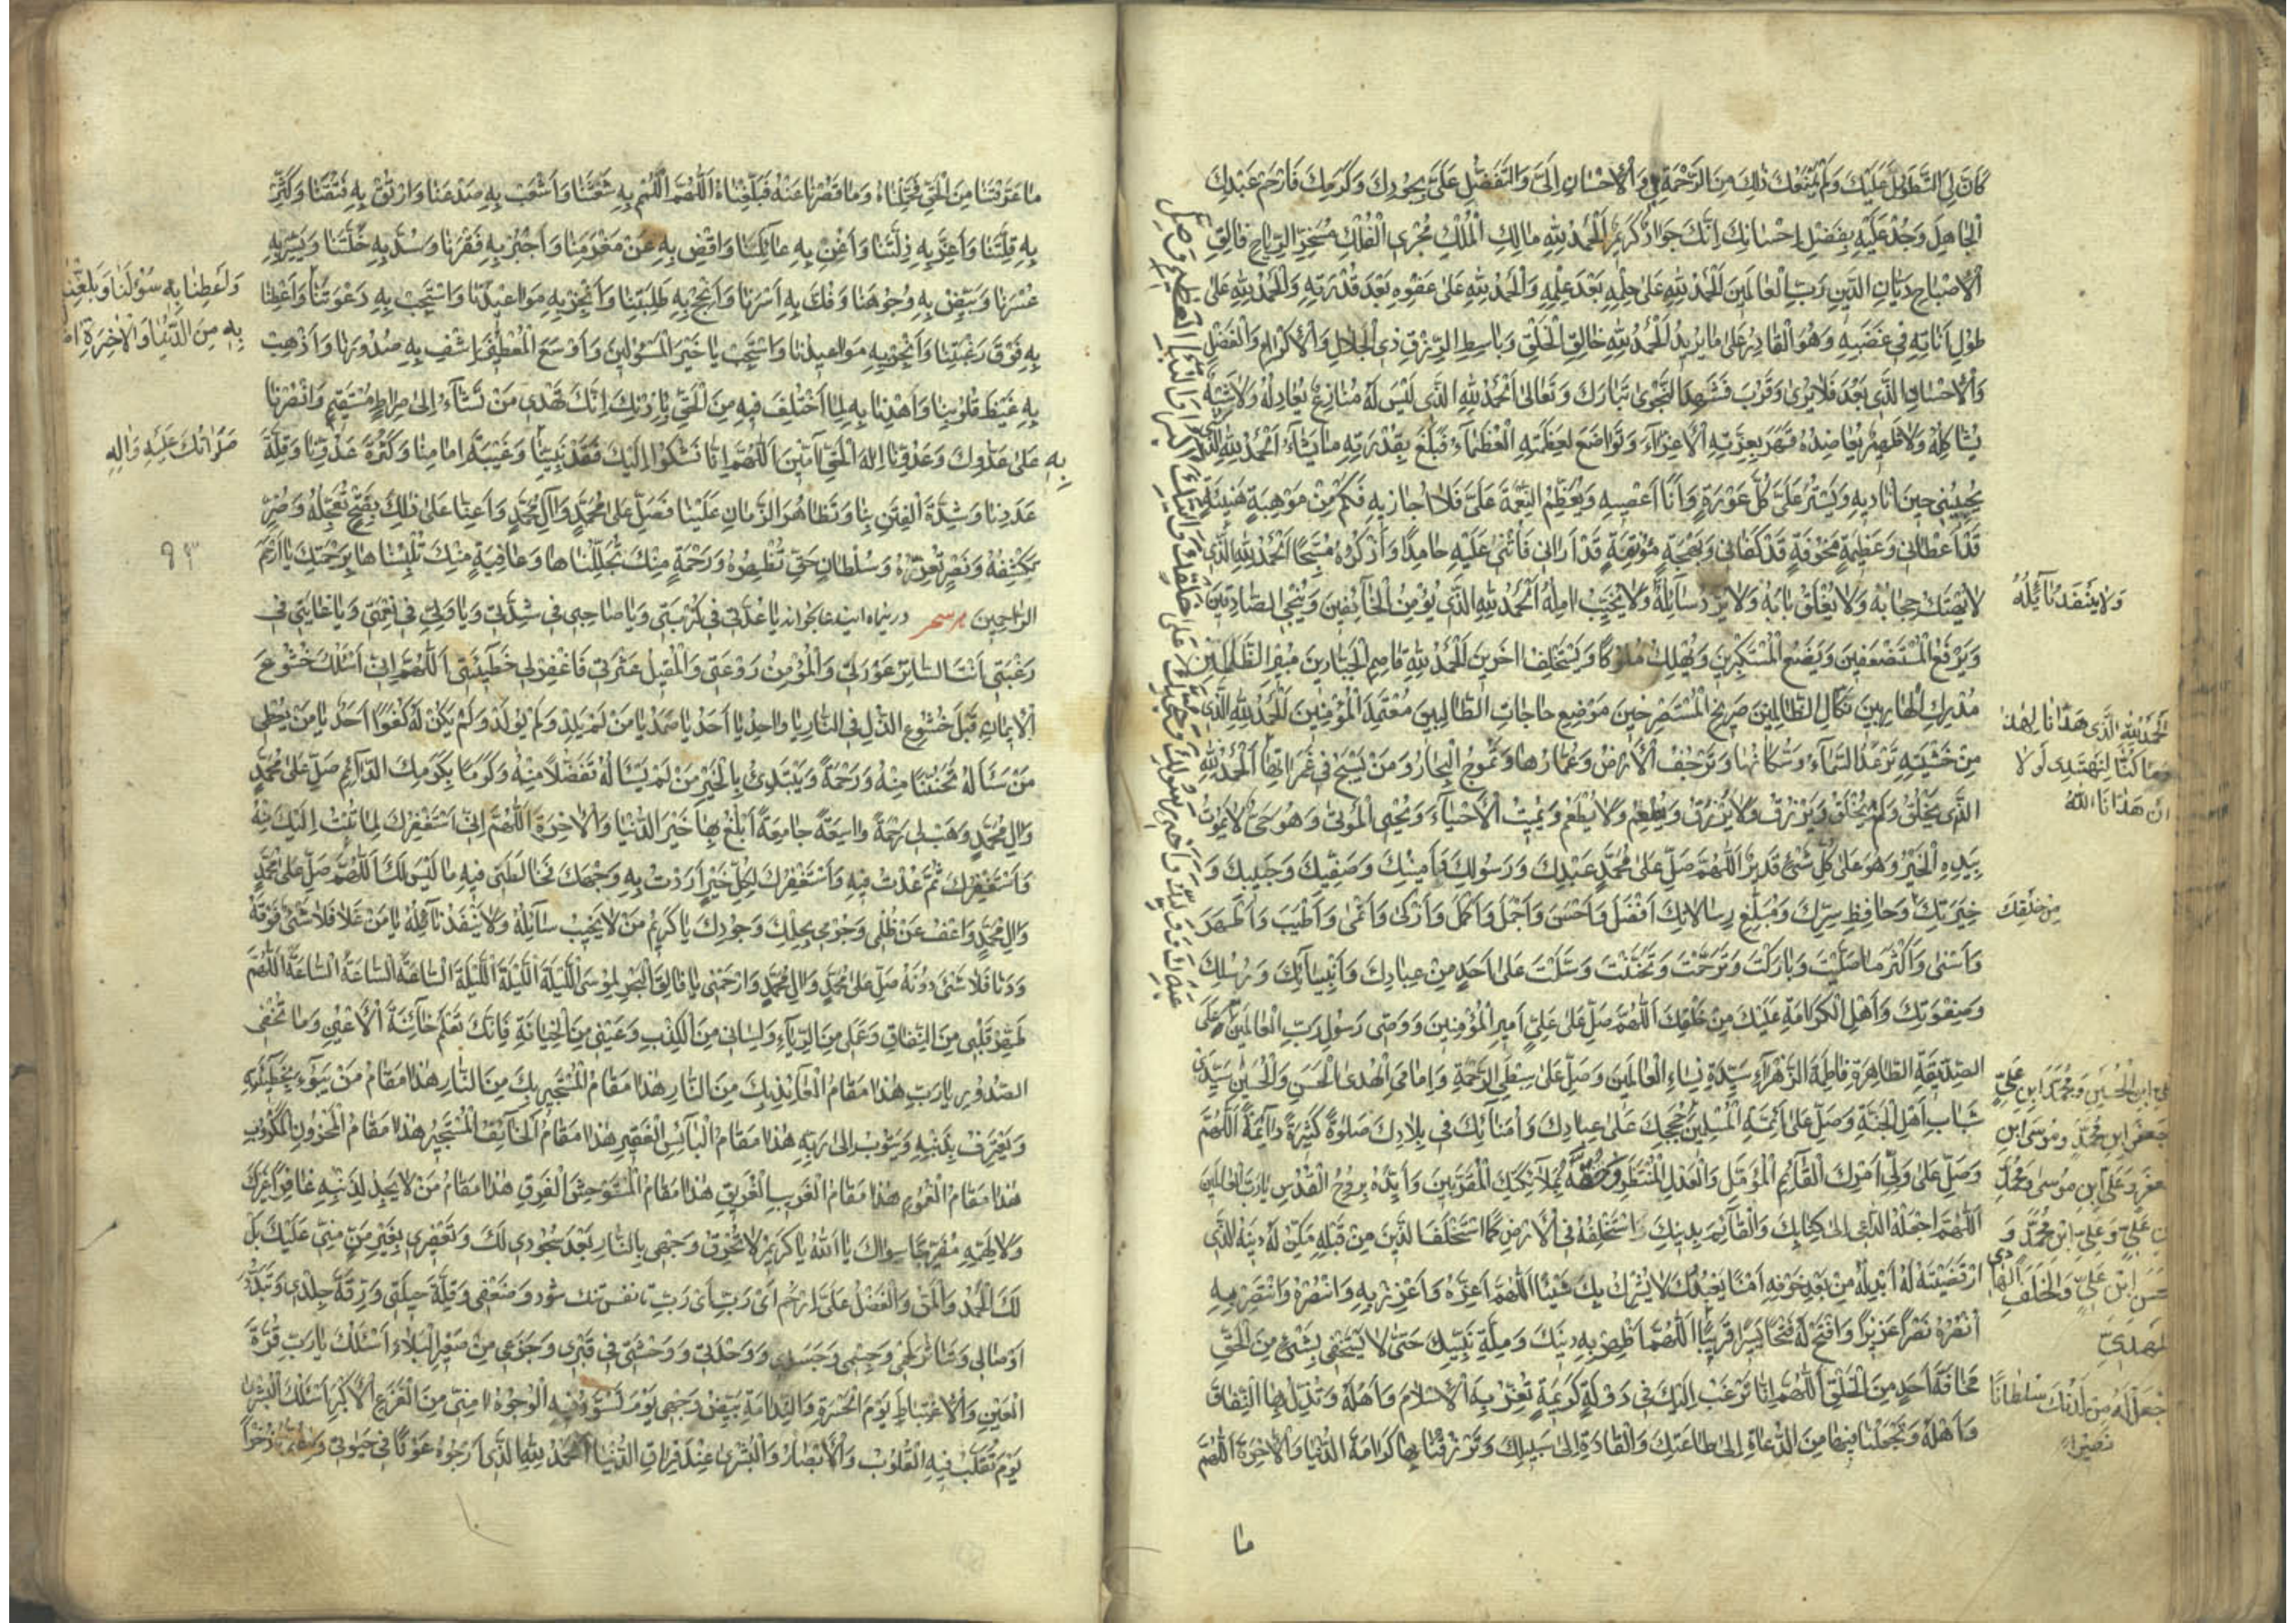 كَانَ لِيَ التَّطَوُّلُ عَلَيْكَ وَلَمْ يَمْنَعْكَ ذٰلِكَ مِنَ الرَّحْمَةِ لِي وَالْاِحْسَانِ اِلَيَّ وَالتَّفَضُّلِ عَلَيَّ بِجُودِكَ وَكَرَمِكَ فَارْحَمْ عَبْدَكَ
الْجَاهِلَ وَجُدْ عَلَيْهِ بِفَضْلِ اِحْسَانِكَ اِنَّكَ جَوَادٌ كَرِيمٌ اَلْحَمْدُ لِلّٰهِ مَالِكِ الْمُلْكِ مُجْرِي الْفُلْكِ مُسَخِّرِ الرِّيَاحِ فَالِقِ
الْاِصْبَاحِ دَيَّانِ الدِّينِ رَبِّ الْعَالَمِينَ اَلْحَمْدُ لِلّٰهِ عَلٰى حِلْمِهِ بَعْدَ عِلْمِهِ وَالْحَمْدُ لِلّٰهِ عَلٰى عَفْوِهِ بَعْدَ قُدْرَتِهِ وَالْحَمْدُ لِلّٰهِ عَلٰى
طُولِ اَنَاتِهِ فِي غَضَبِهِ وَهُوَ الْقَادِرُ عَلٰى مَا يُرِيدُ اَلْحَمْدُ لِلّٰهِ خَالِقِ الْخَلْقِ وَبَاسِطِ الرِّزْقِ ذِي الْجَلَالِ وَالْاِكْرَامِ وَالْفَضْلِ
وَالْاِحْسَانِ الَّذِي بَعُدَ فَلَا يُرٰى وَقَرُبَ فَشَهِدَ النَّجْوٰى تَبَارَكَ وَتَعَالٰى اَلْحَمْدُ لِلّٰهِ الَّذِي لَيْسَ لَهُ مُنَازِعٌ يُعَادِلُهُ وَلَا شَبِيهٌ
يُشَاكِلُهُ وَلَا ظَهِيرٌ يُعَاضِدُهُ قَهَرَ بِعِزَّتِهِ الْاَعِزَّاءَ وَتَوَاضَعَ لِعَظَمَتِهِ الْعُظَمَاءُ فَبَلَغَ بِقُدْرَتِهِ مَا يَشَاءُ اَلْحَمْدُ لِلّٰهِ الَّذِي
يُجِيبُنِي حِينَ اُنَادِيهِ وَيَسْتُرُ عَلَيَّ كُلَّ عَوْرَةٍ وَاَنَا اَعْصِيهِ وَيُعَظِّمُ النِّعْمَةَ عَلَيَّ فَلَا اُجَازِيهِ فَكَمْ مِنْ مَوْهِبَةٍ هَنِيئَةٍ
قَدْ اَعْطَانِي وَعَظِيمَةٍ مَخُوفَةٍ قَدْ كَفَانِي وَبَهْجَةٍ مُونِقَةٍ قَدْ اَرَانِي فَاُثْنِي عَلَيْهِ حَامِدًا وَاَذْكُرُهُ مُسَبِّحًا اَلْحَمْدُ لِلّٰهِ الَّذِي
لَا يُهْتَكُ حِجَابُهُ وَلَا يُغْلَقُ بَابُهُ وَلَا يُرَدُّ سَائِلُهُ وَلَا يُخَيَّبُ اٰمِلُهُ اَلْحَمْدُ لِلّٰهِ الَّذِي يُؤْمِنُ الْخَائِفِينَ وَيُنَجِّي الصَّادِقِينَ
وَلَا يَنْفَدُ نَائِلُهُ
وَيَرْفَعُ الْمُسْتَضْعَفِينَ وَيَضَعُ الْمُسْتَكْبِرِينَ وَيُهْلِكُ مُلُوكًا وَيَسْتَخْلِفُ اٰخَرِينَ اَلْحَمْدُ لِلّٰهِ قَاصِمِ الْجَبَّارِينَ مُبِيرِ الظَّالِمِينَ
مُدْرِكِ الْهَارِبِينَ نَكَالِ الظَّالِمِينَ صَرِيخِ الْمُسْتَصْرِخِينَ مَوْضِعِ حَاجَاتِ الطَّالِبِينَ مُعْتَمَدِ الْمُؤْمِنِينَ اَلْحَمْدُ لِلّٰهِ الَّذِي
مِنْ خَشْيَتِهِ تَرْعَدُ السَّمَاءُ وَسُكَّانُهَا وَتَرْجُفُ الْاَرْضُ وَعُمَّارُهَا وَتَمُوجُ الْبِحَارُ وَمَنْ يَسْبَحُ فِي غَمَرَاتِهَا اَلْحَمْدُ لِلّٰهِ
اَلْحَمْدُ لِلّٰهِ الَّذِي هَدَانَا لِهٰذَا
وَمَا كُنَّا لِنَهْتَدِيَ لَوْلَا
اَنْ هَدَانَا اللّٰهُ
الَّذِي يَخْلُقُ وَلَمْ يُخْلَقْ وَيَرْزُقُ وَلَا يُرْزَقُ وَيُطْعِمُ وَلَا يُطْعَمُ وَيُمِيتُ الْاَحْيَاءَ وَيُحْيِي الْمَوْتٰى وَهُوَ حَيٌّ لَا يَمُوتُ
بِيَدِهِ الْخَيْرُ وَهُوَ عَلٰى كُلِّ شَيْءٍ قَدِيرٌ اَللّٰهُمَّ صَلِّ عَلٰى مُحَمَّدٍ عَبْدِكَ وَرَسُولِكَ وَاَمِينِكَ وَصَفِيِّكَ وَحَبِيبِكَ وَ
خِيَرَتِكَ وَحَافِظِ سِرِّكَ وَمُبَلِّغِ رِسَالَاتِكَ اَفْضَلَ وَاَحْسَنَ وَاَجْمَلَ وَاَكْمَلَ وَاَزْكٰى وَاَنْمٰى وَاَطْيَبَ وَاَطْهَرَ
مِنْ خَلْقِكَ
وَاَسْنٰى وَاَكْثَرَ مَا صَلَّيْتَ وَبَارَكْتَ وَتَرَحَّمْتَ وَتَحَنَّنْتَ وَسَلَّمْتَ عَلٰى اَحَدٍ مِنْ عِبَادِكَ وَاَنْبِيَائِكَ وَرُسُلِكَ
وَصِفْوَتِكَ وَاَهْلِ الْكَرَامَةِ عَلَيْكَ مِنْ خَلْقِكَ اَللّٰهُمَّ صَلِّ عَلٰى عَلِيٍّ اَمِيرِ الْمُؤْمِنِينَ وَوَصِيِّ رَسُولِ رَبِّ الْعَالَمِينَ وَعَلَى
الصِّدِّيقَةِ الطَّاهِرَةِ فَاطِمَةَ الزَّهْرَاءِ سَيِّدَةِ نِسَاءِ الْعَالَمِينَ وَصَلِّ عَلٰى سِبْطَيِ الرَّحْمَةِ وَاِمَامَيِ الْهُدٰى الْحَسَنِ وَالْحُسَيْنِ سَيِّدَيْ
شَبَابِ اَهْلِ الْجَنَّةِ وَصَلِّ عَلٰى اَئِمَّةِ الْمُسْلِمِينَ حُجَجِكَ عَلٰى عِبَادِكَ وَاُمَنَائِكَ فِي بِلَادِكَ صَلٰوةً كَثِيرَةً دَائِمَةً اَللّٰهُمَّ
ابْنِ الْحُسَيْنِ وَمُحَمَّدِ ابْنِ عَلِيٍّ
جَعْفَرِ ابْنِ مُحَمَّدٍ وَمُوسَى ابْنِ
وَعَلِيِّ ابْنِ مُوسٰى وَمُحَمَّدِ
عَلِيٍّ وَعَلِيِّ ابْنِ مُحَمَّدٍ وَ
ابْنِ عَلِيٍّ وَالْخَلَفِ الْهَادِي
وَصَلِّ عَلٰى وَلِيِّ اَمْرِكَ الْقَائِمِ الْمُؤَمَّلِ وَالْعَدْلِ الْمُنْتَظَرِ وَحُفَّهُ بِمَلَائِكَتِكَ الْمُقَرَّبِينَ وَاَيِّدْهُ بِرُوحِ الْقُدُسِ يَا رَبَّ الْعَالَمِينَ
اَللّٰهُمَّ اجْعَلْهُ الدَّاعِيَ اِلٰى كِتَابِكَ وَالْقَائِمَ بِدِينِكَ وَاسْتَخْلِفْهُ فِي الْاَرْضِ كَمَا اسْتَخْلَفْتَ الَّذِينَ مِنْ قَبْلِهِ مَكِّنْ لَهُ دِينَهُ الَّذِي
ارْتَضَيْتَهُ لَهُ اَبْدِلْهُ مِنْ بَعْدِ خَوْفِهِ اَمْنًا يَعْبُدُكَ لَا يُشْرِكُ بِكَ شَيْئًا اَللّٰهُمَّ اَعِزَّهُ وَاَعْزِزْ بِهِ وَانْصُرْهُ وَانْتَصِرْ بِهِ
اُنْصُرْهُ نَصْرًا عَزِيزًا وَافْتَحْ لَهُ فَتْحًا يَسِيرًا قَرِيبًا اَللّٰهُمَّ اَظْهِرْ بِهِ دِينَكَ وَمِلَّةَ نَبِيِّكَ حَتّٰى لَا يَسْتَخْفِيَ بِشَيْءٍ مِنَ الْحَقِّ
سُلْطَانًا
نَصِيرًا
مَخَافَةَ اَحَدٍ مِنَ الْخَلْقِ اَللّٰهُمَّ اِنَّا نَرْغَبُ اِلَيْكَ فِي دَوْلَةٍ كَرِيمَةٍ تُعِزُّ بِهَا الْاِسْلَامَ وَاَهْلَهُ وَتُذِلُّ بِهَا النِّفَاقَ
وَاَهْلَهُ وَتَجْعَلُنَا فِيهَا مِنَ الدُّعَاةِ اِلٰى طَاعَتِكَ وَالْقَادَةِ اِلٰى سَبِيلِكَ وَتَرْزُقُنَا بِهَا كَرَامَةَ الدُّنْيَا وَالْاٰخِرَةِ اَللّٰهُمَّ
مَا
مَا عَرَّفْتَنَا مِنَ الْحَقِّ فَحَمِّلْنَاهُ وَمَا قَصُرْنَا عَنْهُ فَبَلِّغْنَاهُ اَللّٰهُمَّ الْمُمْ بِهِ شَعَثَنَا وَاشْعَبْ بِهِ صَدْعَنَا وَارْتُقْ بِهِ فَتْقَنَا وَكَثِّرْ
بِهِ قِلَّتَنَا وَاَعِزَّ بِهِ ذِلَّتَنَا وَاَغْنِ بِهِ عَائِلَنَا وَاقْضِ بِهِ عَنْ مَغْرَمِنَا وَاجْبُرْ بِهِ فَقْرَنَا وَسُدَّ بِهِ خَلَّتَنَا وَيَسِّرْ بِهِ
عُسْرَنَا وَبَيِّضْ بِهِ وُجُوهَنَا وَفُكَّ بِهِ اَسْرَنَا وَاَنْجِحْ بِهِ طَلِبَتَنَا وَاَنْجِزْ بِهِ مَوَاعِيدَنَا وَاسْتَجِبْ بِهِ دَعْوَتَنَا وَاَعْطِنَا
وَاَعْطِنَا بِهِ سُؤْلَنَا وَبَلِّغْنَا
بِهِ مِنَ الدُّنْيَا وَالْاٰخِرَةِ
بِهِ فَوْقَ رَغْبَتِنَا وَاَنْجِزْ بِهِ مَوَاعِيدَنَا وَاسْتَجِبْ يَا خَيْرَ الْمَسْئُولِينَ وَاَوْسَعَ الْمُعْطِينَ اشْفِ بِهِ صُدُورَنَا وَاَذْهِبْ
بِهِ غَيْظَ قُلُوبِنَا وَاهْدِنَا بِهِ لِمَا اخْتُلِفَ فِيهِ مِنَ الْحَقِّ بِاِذْنِكَ اِنَّكَ تَهْدِي مَنْ تَشَاءُ اِلٰى صِرَاطٍ مُسْتَقِيمٍ وَانْصُرْنَا
بِهِ عَلٰى عَدُوِّكَ وَعَدُوِّنَا اِلٰهَ الْحَقِّ اٰمِينَ اَللّٰهُمَّ اِنَّا نَشْكُوا اِلَيْكَ فَقْدَ نَبِيِّنَا وَغَيْبَةَ اِمَامِنَا وَكَثْرَةَ عَدُوِّنَا وَقِلَّةَ
صَلَوَاتُكَ عَلَيْهِ وَاٰلِهِ
عَدَدِنَا وَشِدَّةَ الْفِتَنِ بِنَا وَتَظَاهُرَ الزَّمَانِ عَلَيْنَا فَصَلِّ عَلٰى مُحَمَّدٍ وَاٰلِ مُحَمَّدٍ وَاَعِنَّا عَلٰى ذٰلِكَ بِفَتْحٍ تُعَجِّلُهُ وَضُرٍّ
تَكْشِفُهُ وَنَصْرٍ تُعِزُّهُ وَسُلْطَانِ حَقٍّ تُظْهِرُهُ وَرَحْمَةٍ مِنْكَ تُجَلِّلُنَاهَا وَعَافِيَةٍ مِنْكَ تُلْبِسُنَاهَا بِرَحْمَتِكَ يَا اَرْحَمَ
الرَّاحِمِينَ يَا عُدَّتِي فِي كُرْبَتِي وَيَا صَاحِبِي فِي شِدَّتِي وَيَا وَلِيِّي فِي نِعْمَتِي وَيَا غَايَتِي فِي
رَغْبَتِي اَنْتَ السَّاتِرُ عَوْرَتِي وَالْمُؤْمِنُ رَوْعَتِي وَالْمُقِيلُ عَثْرَتِي فَاغْفِرْ لِي خَطِيئَتِي اَللّٰهُمَّ اِنِّي اَسْئَلُكَ خُشُوعَ
الْاِيمَانِ قَبْلَ خُشُوعِ الذُّلِّ فِي النَّارِ يَا وَاحِدُ يَا اَحَدُ يَا صَمَدُ يَا مَنْ لَمْ يَلِدْ وَلَمْ يُولَدْ وَلَمْ يَكُنْ لَهُ كُفُوًا اَحَدٌ يَا مَنْ يُعْطِي
مَنْ سَأَلَهُ تَحَنُّنًا مِنْهُ وَرَحْمَةً وَيَبْتَدِئُ بِالْخَيْرِ مَنْ لَمْ يَسْأَلْهُ تَفَضُّلًا مِنْهُ وَكَرَمًا بِكَرَمِكَ الدَّائِمِ صَلِّ عَلٰى مُحَمَّدٍ
وَاٰلِ مُحَمَّدٍ وَهَبْ لِي رَحْمَةً وَاسِعَةً جَامِعَةً اَبْلُغُ بِهَا خَيْرَ الدُّنْيَا وَالْاٰخِرَةِ اَللّٰهُمَّ اِنِّي اَسْتَغْفِرُكَ لِمَا تُبْتُ اِلَيْكَ مِنْهُ
وَاَسْتَغْفِرُكَ ثُمَّ عُدْتُ فِيهِ وَاَسْتَغْفِرُكَ لِكُلِّ خَيْرٍ اَرَدْتُ بِهِ وَجْهَكَ فَخَالَطَنِي فِيهِ مَا لَيْسَ لَكَ اَللّٰهُمَّ صَلِّ عَلٰى مُحَمَّدٍ
وَاٰلِ مُحَمَّدٍ وَاعْفُ عَنْ ظُلْمِي وَجُرْمِي بِحِلْمِكَ وَجُودِكَ يَا كَرِيمُ مَنْ لَا يَخِيبُ سَائِلُهُ وَلَا يَنْفَدُ نَائِلُهُ يَا مَنْ عَلَا فَلَا شَيْءَ فَوْقَهُ
وَدَنَا فَلَا شَيْءَ دُونَهُ صَلِّ عَلٰى مُحَمَّدٍ وَاٰلِ مُحَمَّدٍ وَارْحَمْنِي يَا فَالِقَ الْبَحْرِ لِمُوسَى اللَّيْلَةَ اللَّيْلَةَ اللَّيْلَةَ السَّاعَةَ السَّاعَةَ السَّاعَةَ اَللّٰهُمَّ
طَهِّرْ قَلْبِي مِنَ النِّفَاقِ وَعَمَلِي مِنَ الرِّيَاءِ وَلِسَانِي مِنَ الْكِذْبِ وَعَيْنِي مِنَ الْخِيَانَةِ فَاِنَّكَ تَعْلَمُ خَائِنَةَ الْاَعْيُنِ وَمَا تُخْفِي
الصُّدُورُ يَا رَبِّ هٰذَا مَقَامُ الْعَائِذِ بِكَ مِنَ النَّارِ هٰذَا مَقَامُ الْمُسْتَجِيرِ بِكَ مِنَ النَّارِ هٰذَا مَقَامُ مَنْ يَبُوءُ بِخَطِيئَتِهِ
وَيَعْتَرِفُ بِذَنْبِهِ وَيَتُوبُ اِلٰى رَبِّهِ هٰذَا مَقَامُ الْبَائِسِ الْفَقِيرِ هٰذَا مَقَامُ الْخَائِفِ الْمُسْتَجِيرِ هٰذَا مَقَامُ الْمَحْزُونِ الْمَكْرُوبِ
هٰذَا مَقَامُ الْمَغْمُومِ هٰذَا مَقَامُ الْغَرِيبِ الْغَرِيقِ هٰذَا مَقَامُ الْمُسْتَوْحِشِ الْفَرِقِ هٰذَا مَقَامُ مَنْ لَا يَجِدُ لِذَنْبِهِ غَافِرًا غَيْرَكَ
وَلَا لِهَمِّهِ مُفَرِّجًا سِوَاكَ يَا اَللّٰهُ يَا كَرِيمُ لَا تُحْرِقْ وَجْهِي بِالنَّارِ بَعْدَ سُجُودِي لَكَ وَتَعْفِيرِي بِغَيْرِ مَنٍّ مِنِّي عَلَيْكَ بَلْ
لَكَ الْحَمْدُ وَالْمَنُّ وَالْفَضْلُ عَلَيَّ اِرْحَمْ اَيْ رَبِّ اَيْ رَبِّ تا نفس تنك شود وَضَعْفِي وَقِلَّةَ حِيلَتِي وَرِقَّةَ جِلْدِي وَتَبَدُّدَ
اَوْصَالِي وَتَنَاثُرَ لَحْمِي وَجِسْمِي وَجَسَدِي وَوَحْدَتِي وَوَحْشَتِي فِي قَبْرِي وَجَزَعِي مِنْ صَغِيرِ الْبَلَاءِ اَسْئَلُكَ يَا رَبِّ قُرَّةَ
الْعَيْنِ وَالْاِغْتِبَاطَ يَوْمَ الْحَسْرَةِ وَالنَّدَامَةِ بَيِّضْ وَجْهِي يَوْمَ تَسْوَدُّ فِيهِ الْوُجُوهُ اٰمِنِّي مِنَ الْفَزَعِ الْاَكْبَرِ اَسْئَلُكَ الْبُشْرٰى
يَوْمَ تُقَلَّبُ فِيهِ الْقُلُوبُ وَالْاَبْصَارُ وَالْبُشْرٰى عِنْدَ فِرَاقِ الدُّنْيَا اَلْحَمْدُ لِلّٰهِ الَّذِي اَرْجُوهُ عَوْنًا فِي حَيٰوتِي